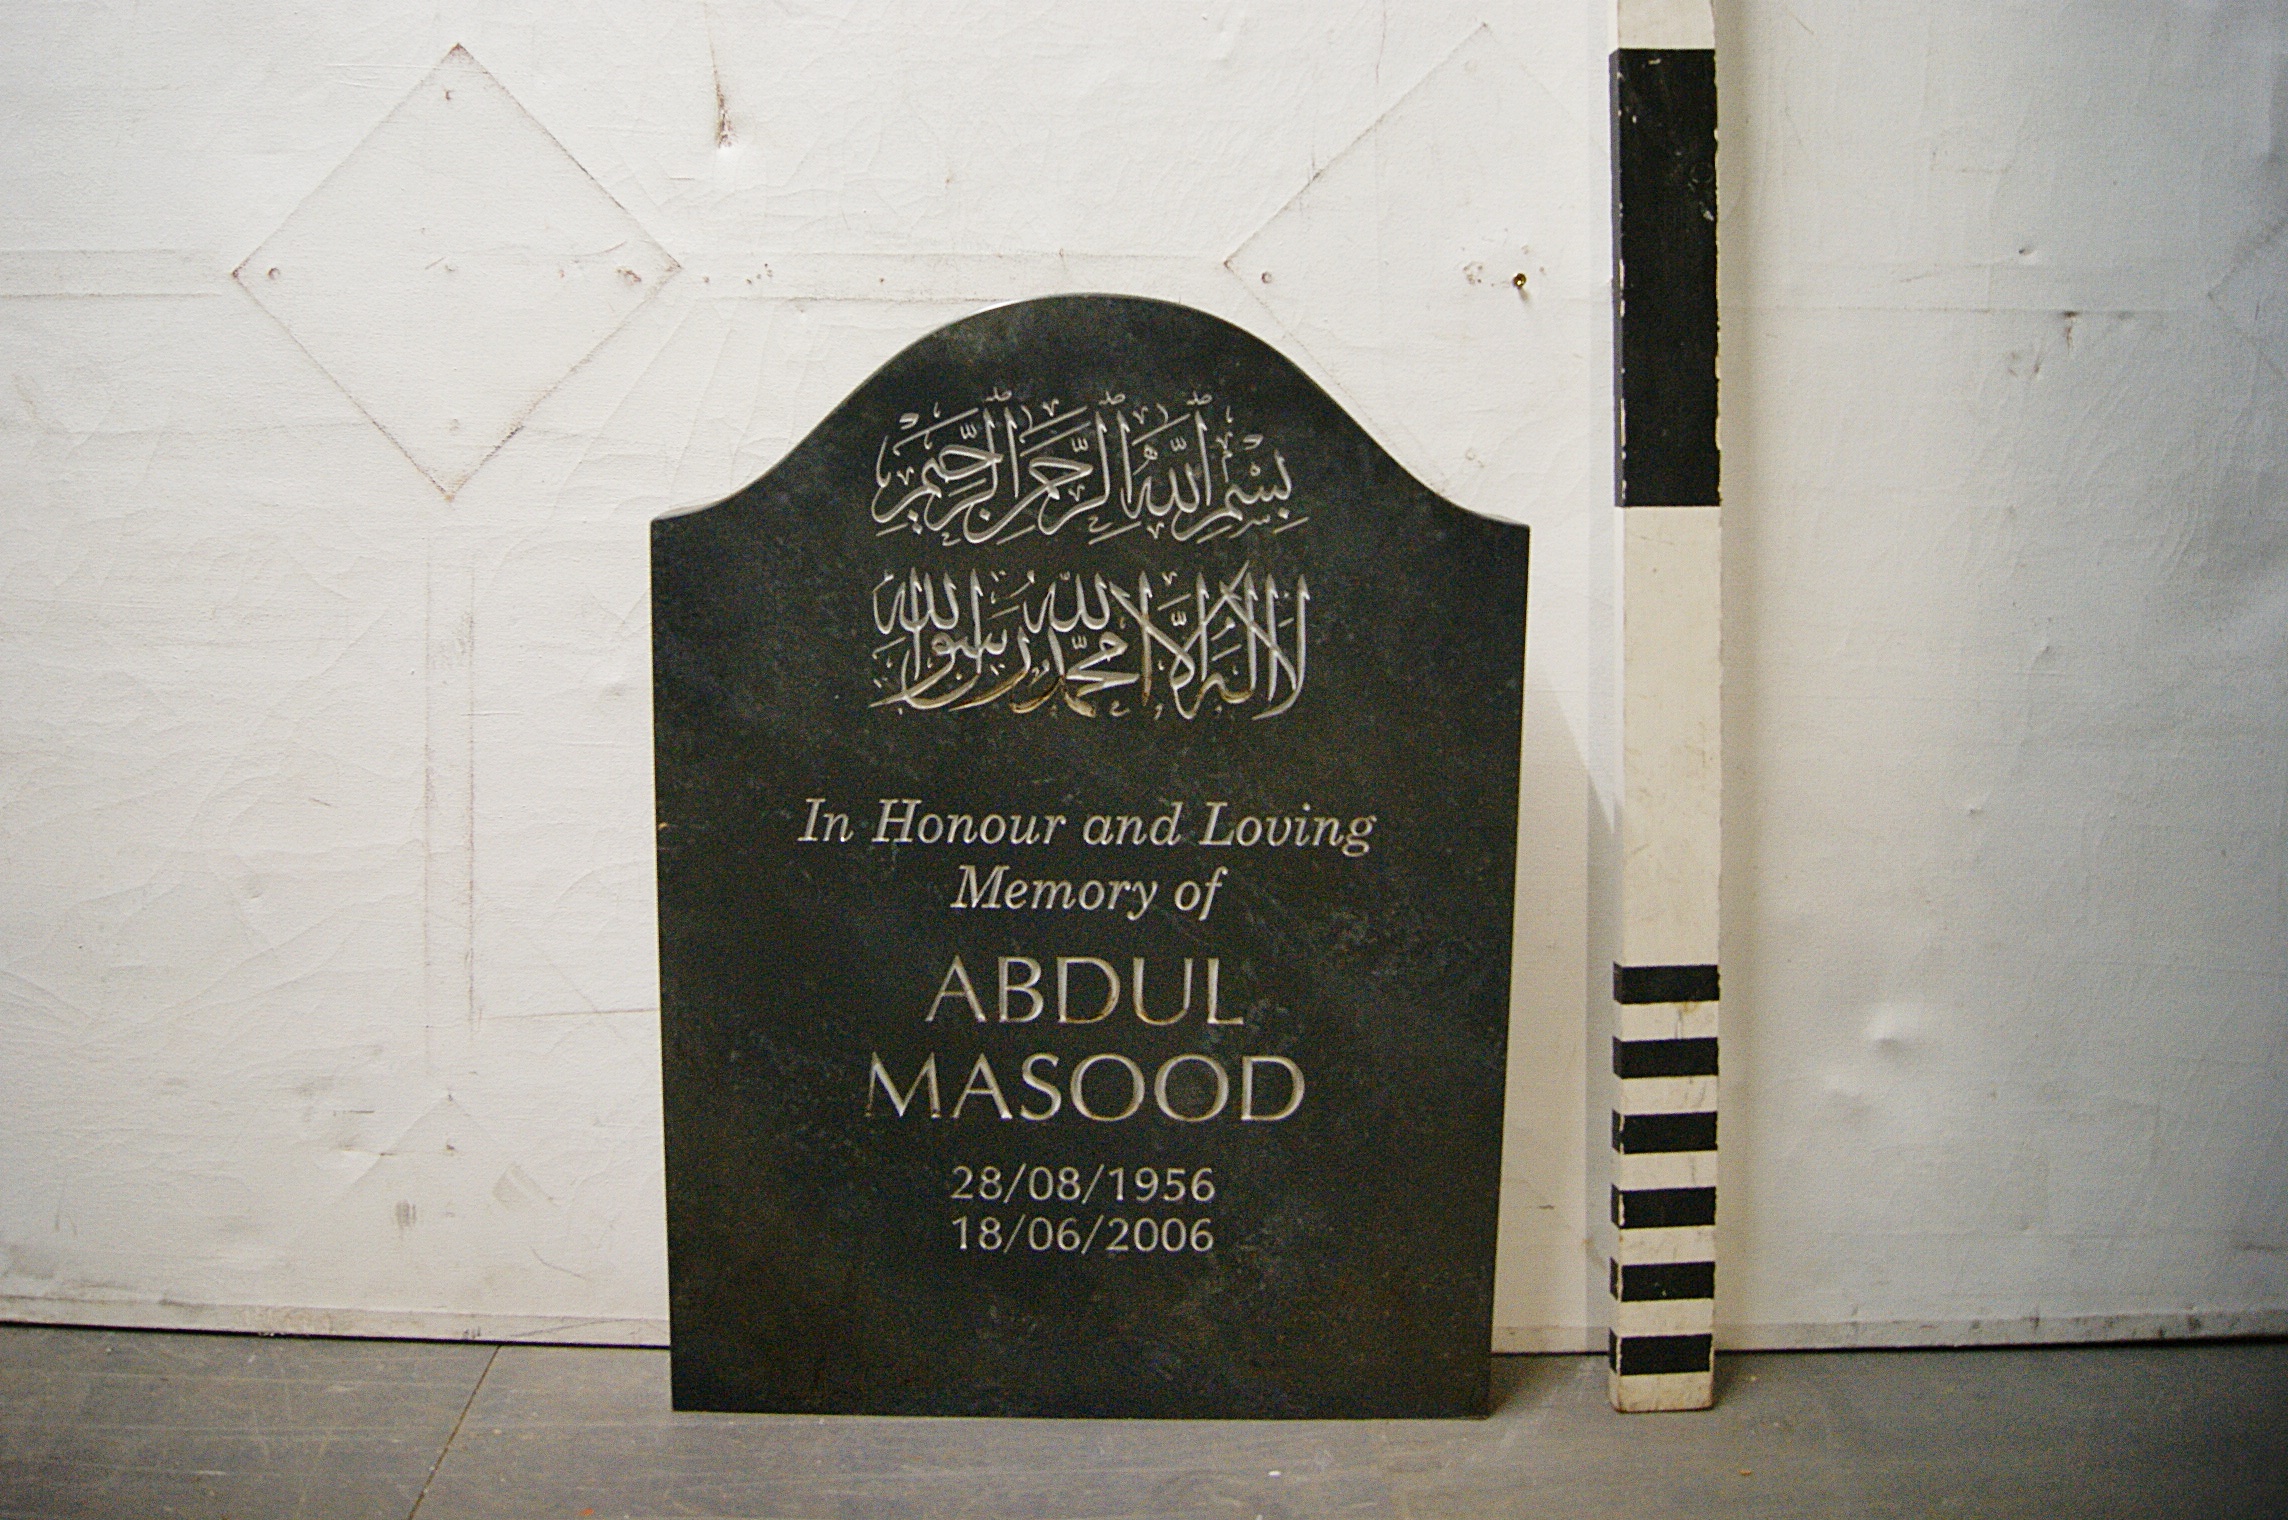 بِسْمِ اللَّهِ الرَّحْمَٰنِ الرَّحِيمِ
لا اله الا الله محمد رسول الله
In Honour and Loving
Memory of
ABDUL
MASOOD
28/08/1956
18/06/2006